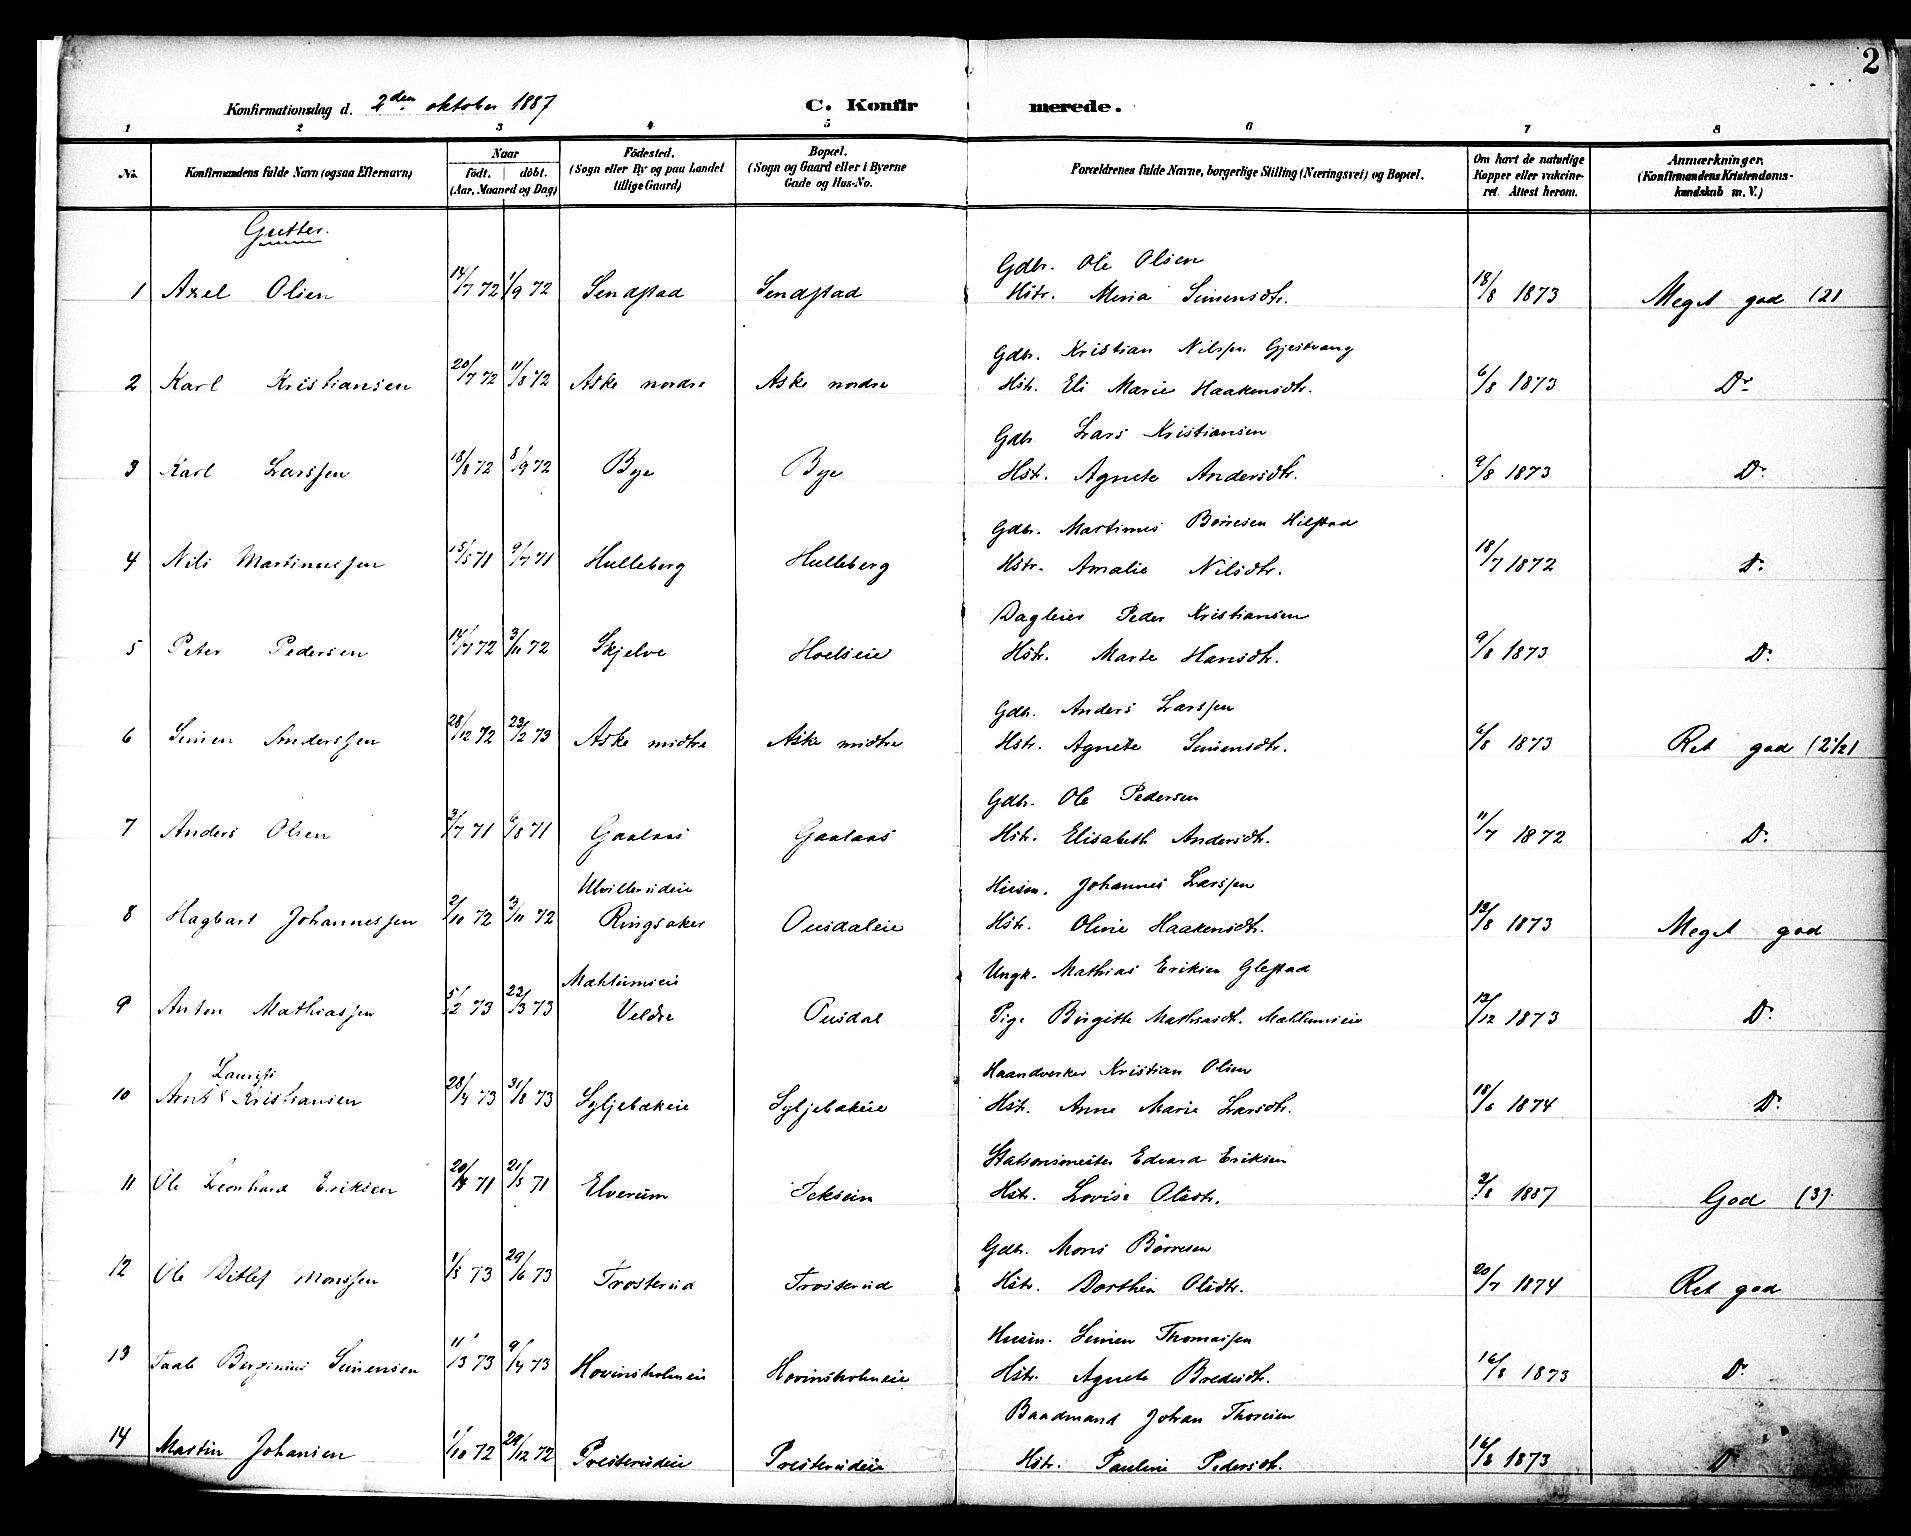 2
Konfirmationsdag d. 2den oktober 1887
C. Konfirmerede.
1 2 3 4 5 6 7 8
No.
Konfirmandens fulde Navn (ogsaa Efternavn)
Naar
født. døbt.
(Aar, Maaned og Dag)
Fødested.
(Sogn eller By og paa Landet
tillige Gaard)
Bopæl.
(Sogn og Gaard eller i Byerne
Gade og Hus-No.
Forældrenes fulde Navne, borgerlige Stilling (Næringsvei) og Bopæl.
Om havt de naturlige
Kopper eller vakcine-
ret. Attest herom.
Anmærkninger.
(Konfirmandens Kristendoms-
kundskab m. V.)
Gutter.
Gdbr. Ole Olsen
1 Axel Olsen 14/7 72 1/9 72 Sendstad Sendstad Hstr. Maria Simensdtr. 18/8 1873 Meget god (2)
Gdbr. Kristian Nilssen Gjestvang
2 Karl Kristiansen 20/7 72 11/8 72 Aske nordre Aske nordre Hstr. Eli Marie Haakensdtr. 6/8 1873 Do
Gdbr. Lars Kristiansen
3 Karl Larssen 18/8 72 8/9 72 Bye Bye Hstr. Agnete Andersdtr. 9/8 1873 Do
Gdbr. Martinus Børresen Hilstad
4 Nils Martinussen 15/5 71 9/7 71 Hulleberg Hulleberg Hstr. Amalie Nilsdtr. 18/7 1872 Do
Dagleier Peder Kristiansen
5 Peter Pedersen 14/7 72 3/11 72 Skjelve Hoelseie Hstr. Marte Hansdtr. 9/8 1873 Do
Gdbr. Anders Larssen
6 Simen Anderssen 28/12 72 23/2 73 Aske midtre Aske midtre Hstr. Agnete Simensdtr. 6/8 1873 Ret god (2 1/2)
Gdbr. Ole Pedersen
7 Anders Olsen 2/7 71 6/8 71 Gaalaas Gaalaas Hstr. Elisabeth Andersdtr. 11/7 1872 Do
Husm. Johannes Larssen
8 Hagbart Johannessen 2/10 72 3/11 72 Ringsaker Ousdaleie Hstr. Oline Haakensdtr. 13/8 1873 Meget god
Mæhlumseie Ungk. Mathias Eriksen Glestad
9 Anton Mathiassen 5/2 73 23/3 73 Veldre Ousdal Pige Birgitte Mathiasdt. Mæhlumseie 13/12 1873 Do
Laurits Haandverker Kristian Olsen
10 Arnt Kristiansen 28/4 73 31/8 73 Syljebækeie Syljebækeie Hstr. Anne Marie Larsdtr. 18/6 1874 Do
Stationsmester Edvard Eriksen
11 Ole Leonhard Eriksen 71 21/5 71 Elverum Hstr. Lovise Olsdtr. 2/8 1887 God (3)
Gdbr. Mons Børresen
12 Ole Ditlef Monssen 1/5 73 29/6 73 Trosterud Trosterud Hstr. Dorthea Olsdtr. 20/7 1874 Ret god
Husm. Simen Thomassen
13 Berginius Simensen 11/3 73 9/4 73 Hovinsholmeie Hovinsholmeie Hstr. Agnete Bredesdtr. 16/8 1873 Do
Baadmand Johan Thoresen
14 Martin Johansen 1/10 72 29/12 72 Presterudeie Presterudeie Hstr. Pauline Pedersdt. 16/8 1873 Do